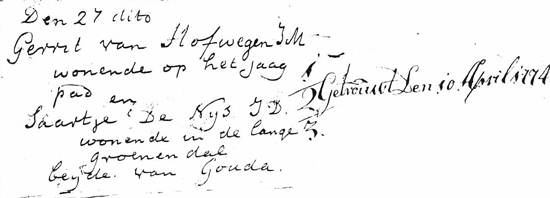 Den 27 dito
Gerrit van Hofwegen J M
wonende op het jaag
pad en
Saartje De Nijs J D.
wonende in de lange
groenendal
beijde van Gouda.
1
2 Getrouwt Den 10 April 1774
3.